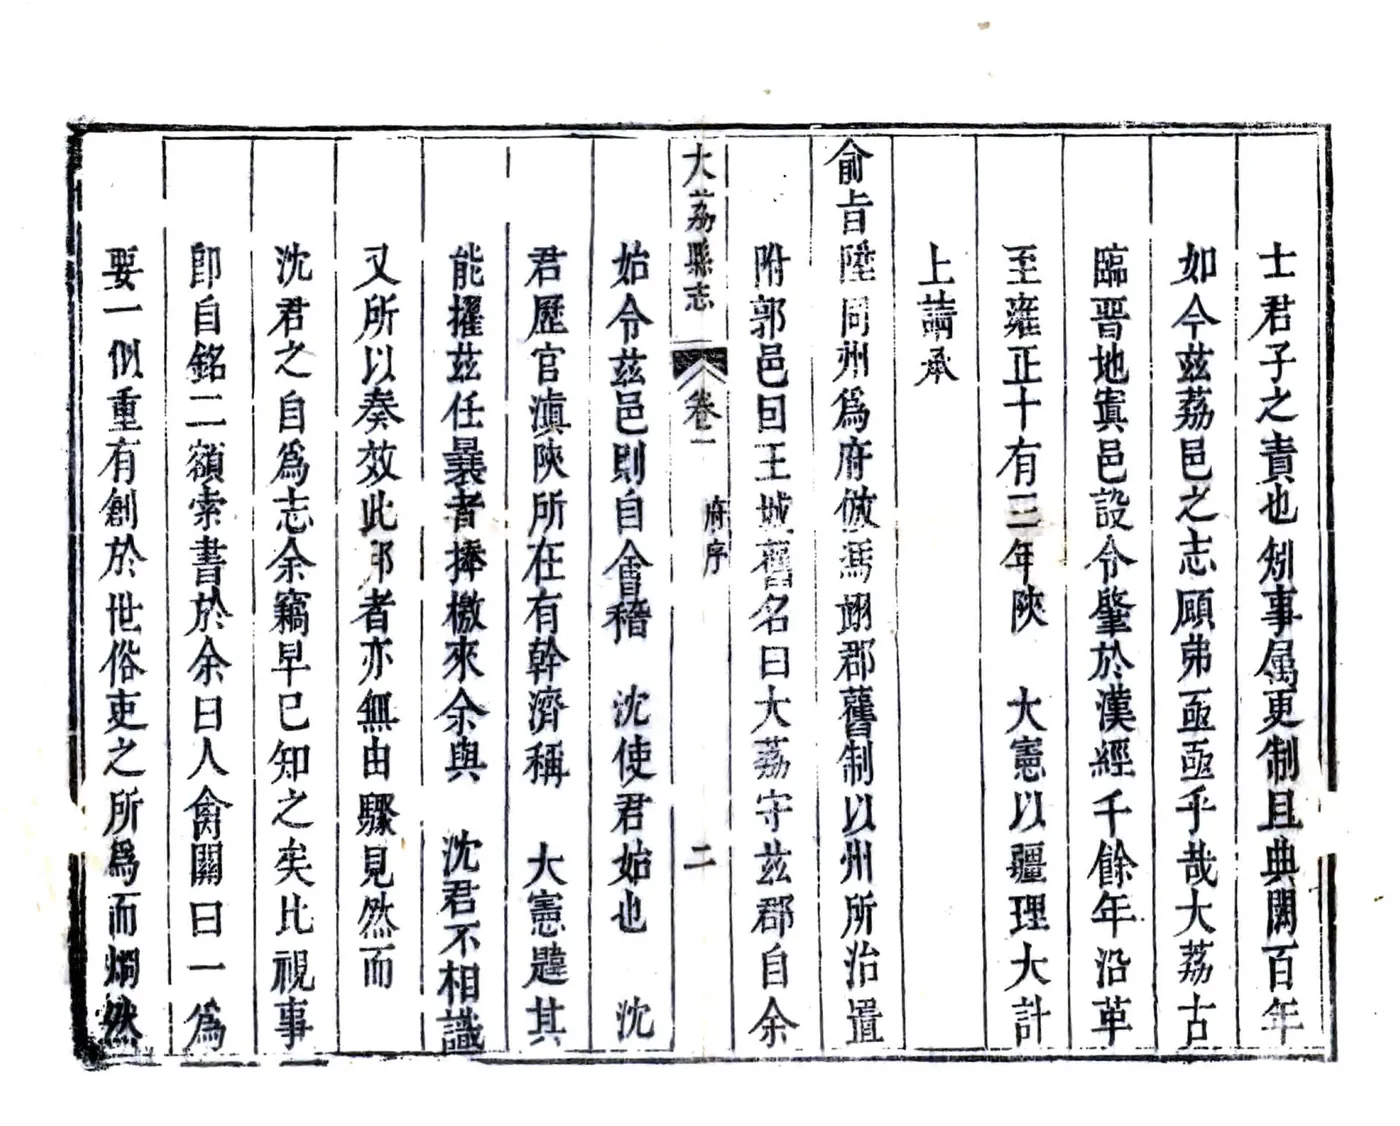 士君子之責也矧事属更制且典閼百年
如今玆荔邑之志顧弗亟亟乎哉大荔古
臨晉地寘邑設令肇於漢經千餘年沿革
至雍正十有三年陝 大憲以疆理大計
上請承
俞旨陞同州爲府倣馮翊郡舊制以州所治置
附郭邑因王城舊名曰大荔守玆郡自余
大荔縣志 卷一 府序 二
始令玆邑則自會稽 沈使君始也 沈
君歷官滇陝所在有幹濟稱 大憲韙其
能擢玆任曩者捧檄來余與 沈君不相識
又所以奏效此邦者亦無由驟見然而
沈君之自爲志余竊早已知之矣比視事
卽自銘二額索書於余曰人禽關曰一爲
要一似重有創於世俗吏之所爲而烱然